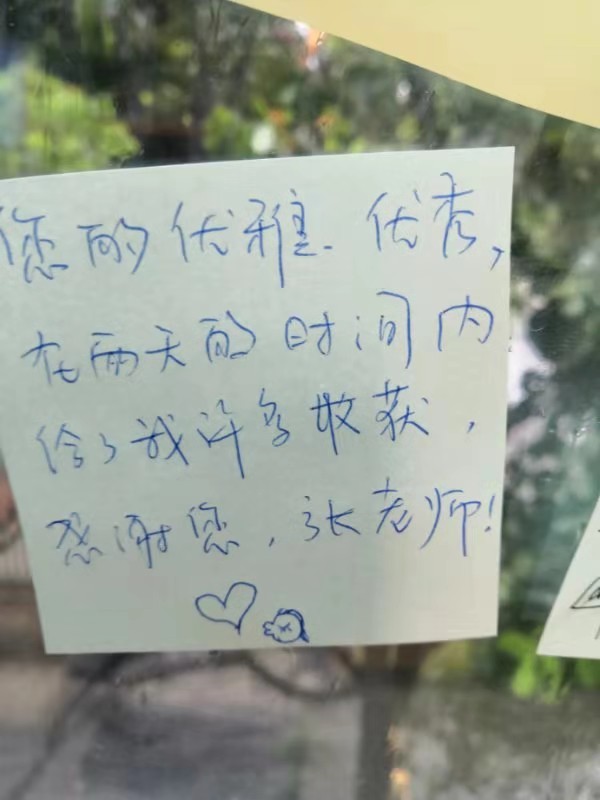 您的优雅、优秀,
在两天的时间内
给了我许多收获,
感谢您,张老师!